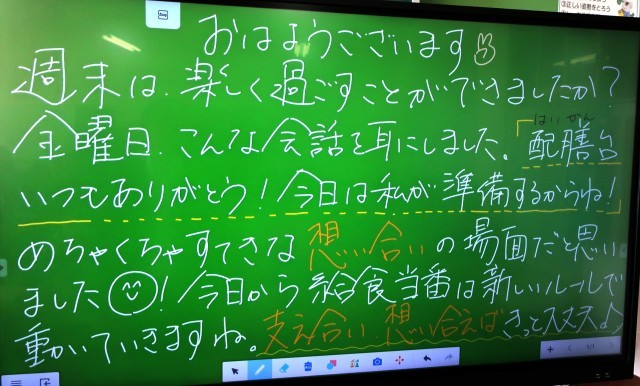 ③正しい姿勢をとろう
おはようございます
週末は、楽しく過ごすことができましたか?
はいぜん
金曜日、こんな会話を耳にしました。「配膳台
いつもありがとう!今日は私が準備するからね!」
めちゃくちゃすてきな想い合いの場面だと思い
ました!今日から給食当番は新しいルールで
動いていきますね。支え合い、想い合えばきっと大丈夫♪
1/1